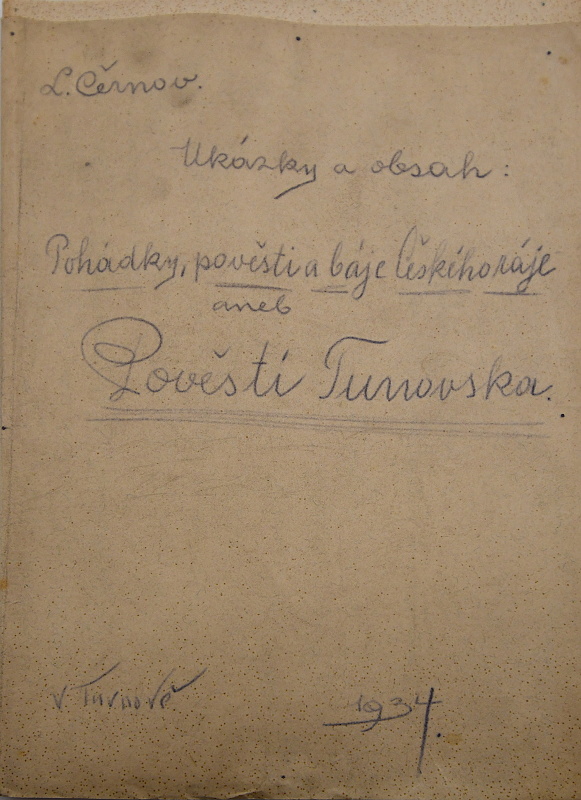 L. Cěrnov.
Ukázky a obsah:
Pohádky, pověsti a báje českého ráje
aneb
Pověsti Turnovska.
v Turnově
1934.